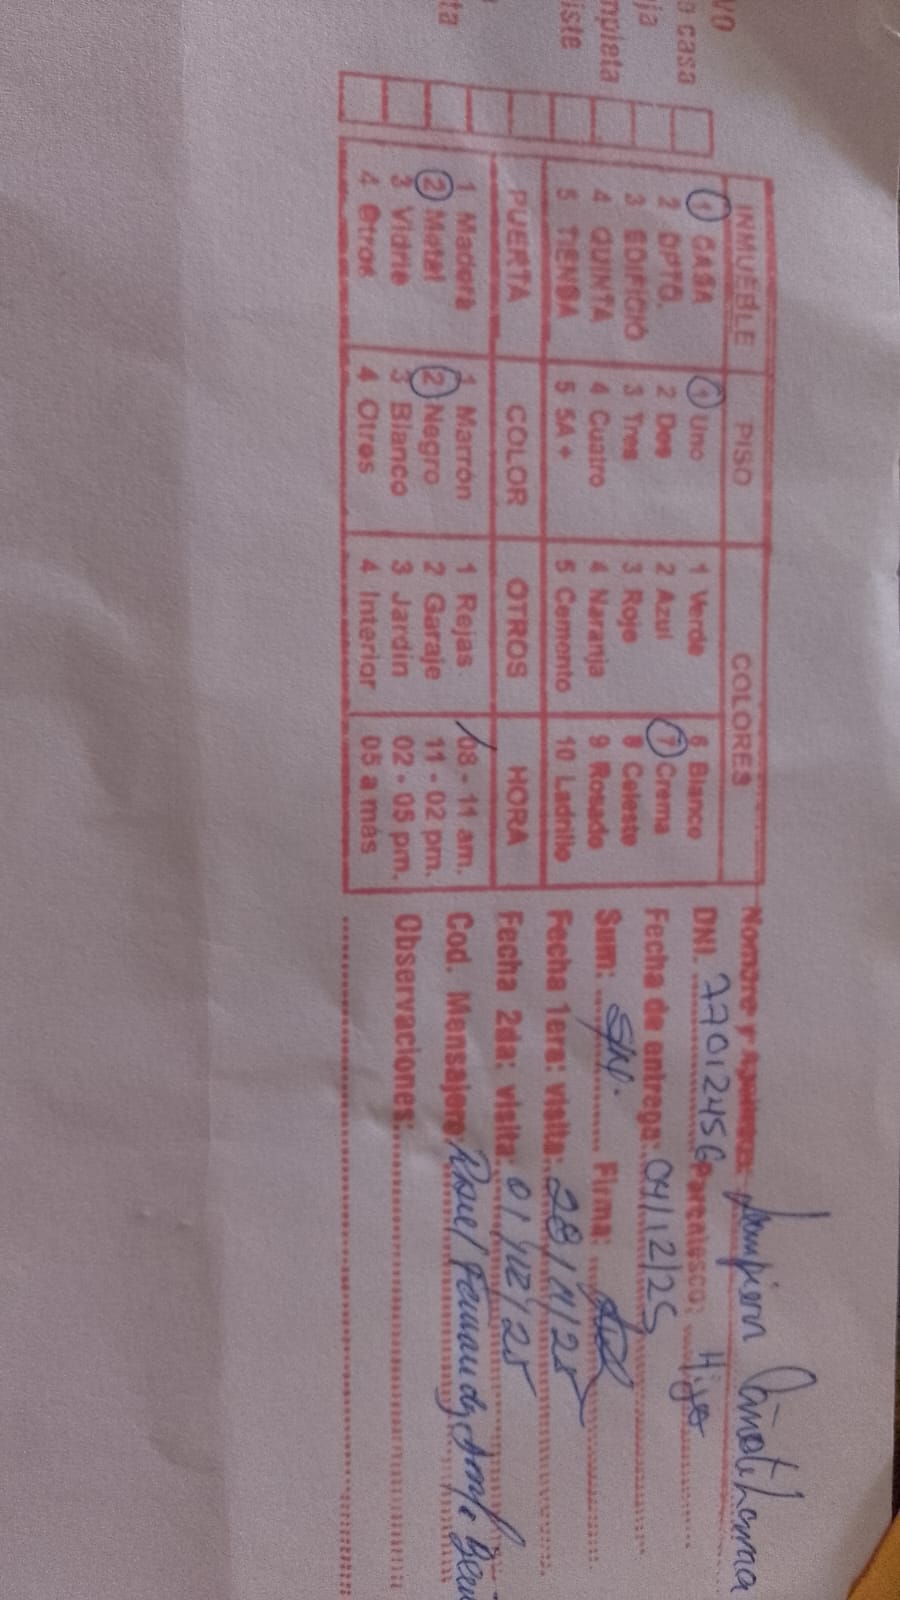 vo
casa
ja
mpleta
iste
ta
INMUEBLE PISO COLORES
1 CASA 1 Uno 1 Verde 6 Blanco
2 DPTO. 2 Dos 2 Azul 7 Crema
3 EDIFICIO 3 Tres 3 Rojo 8 Celeste
4 QUINTA 4 Cuatro 4 Naranja 9 Rosado
5 TIENDA 5 5A + 5 Cemento 10 Ladrillo
PUERTA COLOR OTROS HORA
1 Madera 1 Marrón 1 Rejas 08 - 11 am.
2 Metal 2 Negro 2 Garaje 11 - 02 pm.
3 Vidrio 3 Blanco 3 Jardin 02 - 05 pm.
4 Otros 4 Otros 4 Interior 05 a más
Nombre y Apellidos:
DNI. 77012456 Parentesco: Hijo
Fecha de entrega: 04/12/25
Sum: Firma:
Fecha 1era: visita: 28/11/25
Fecha 2da: visita: 01/12/25
Cod. Mensajero:
Observaciones: